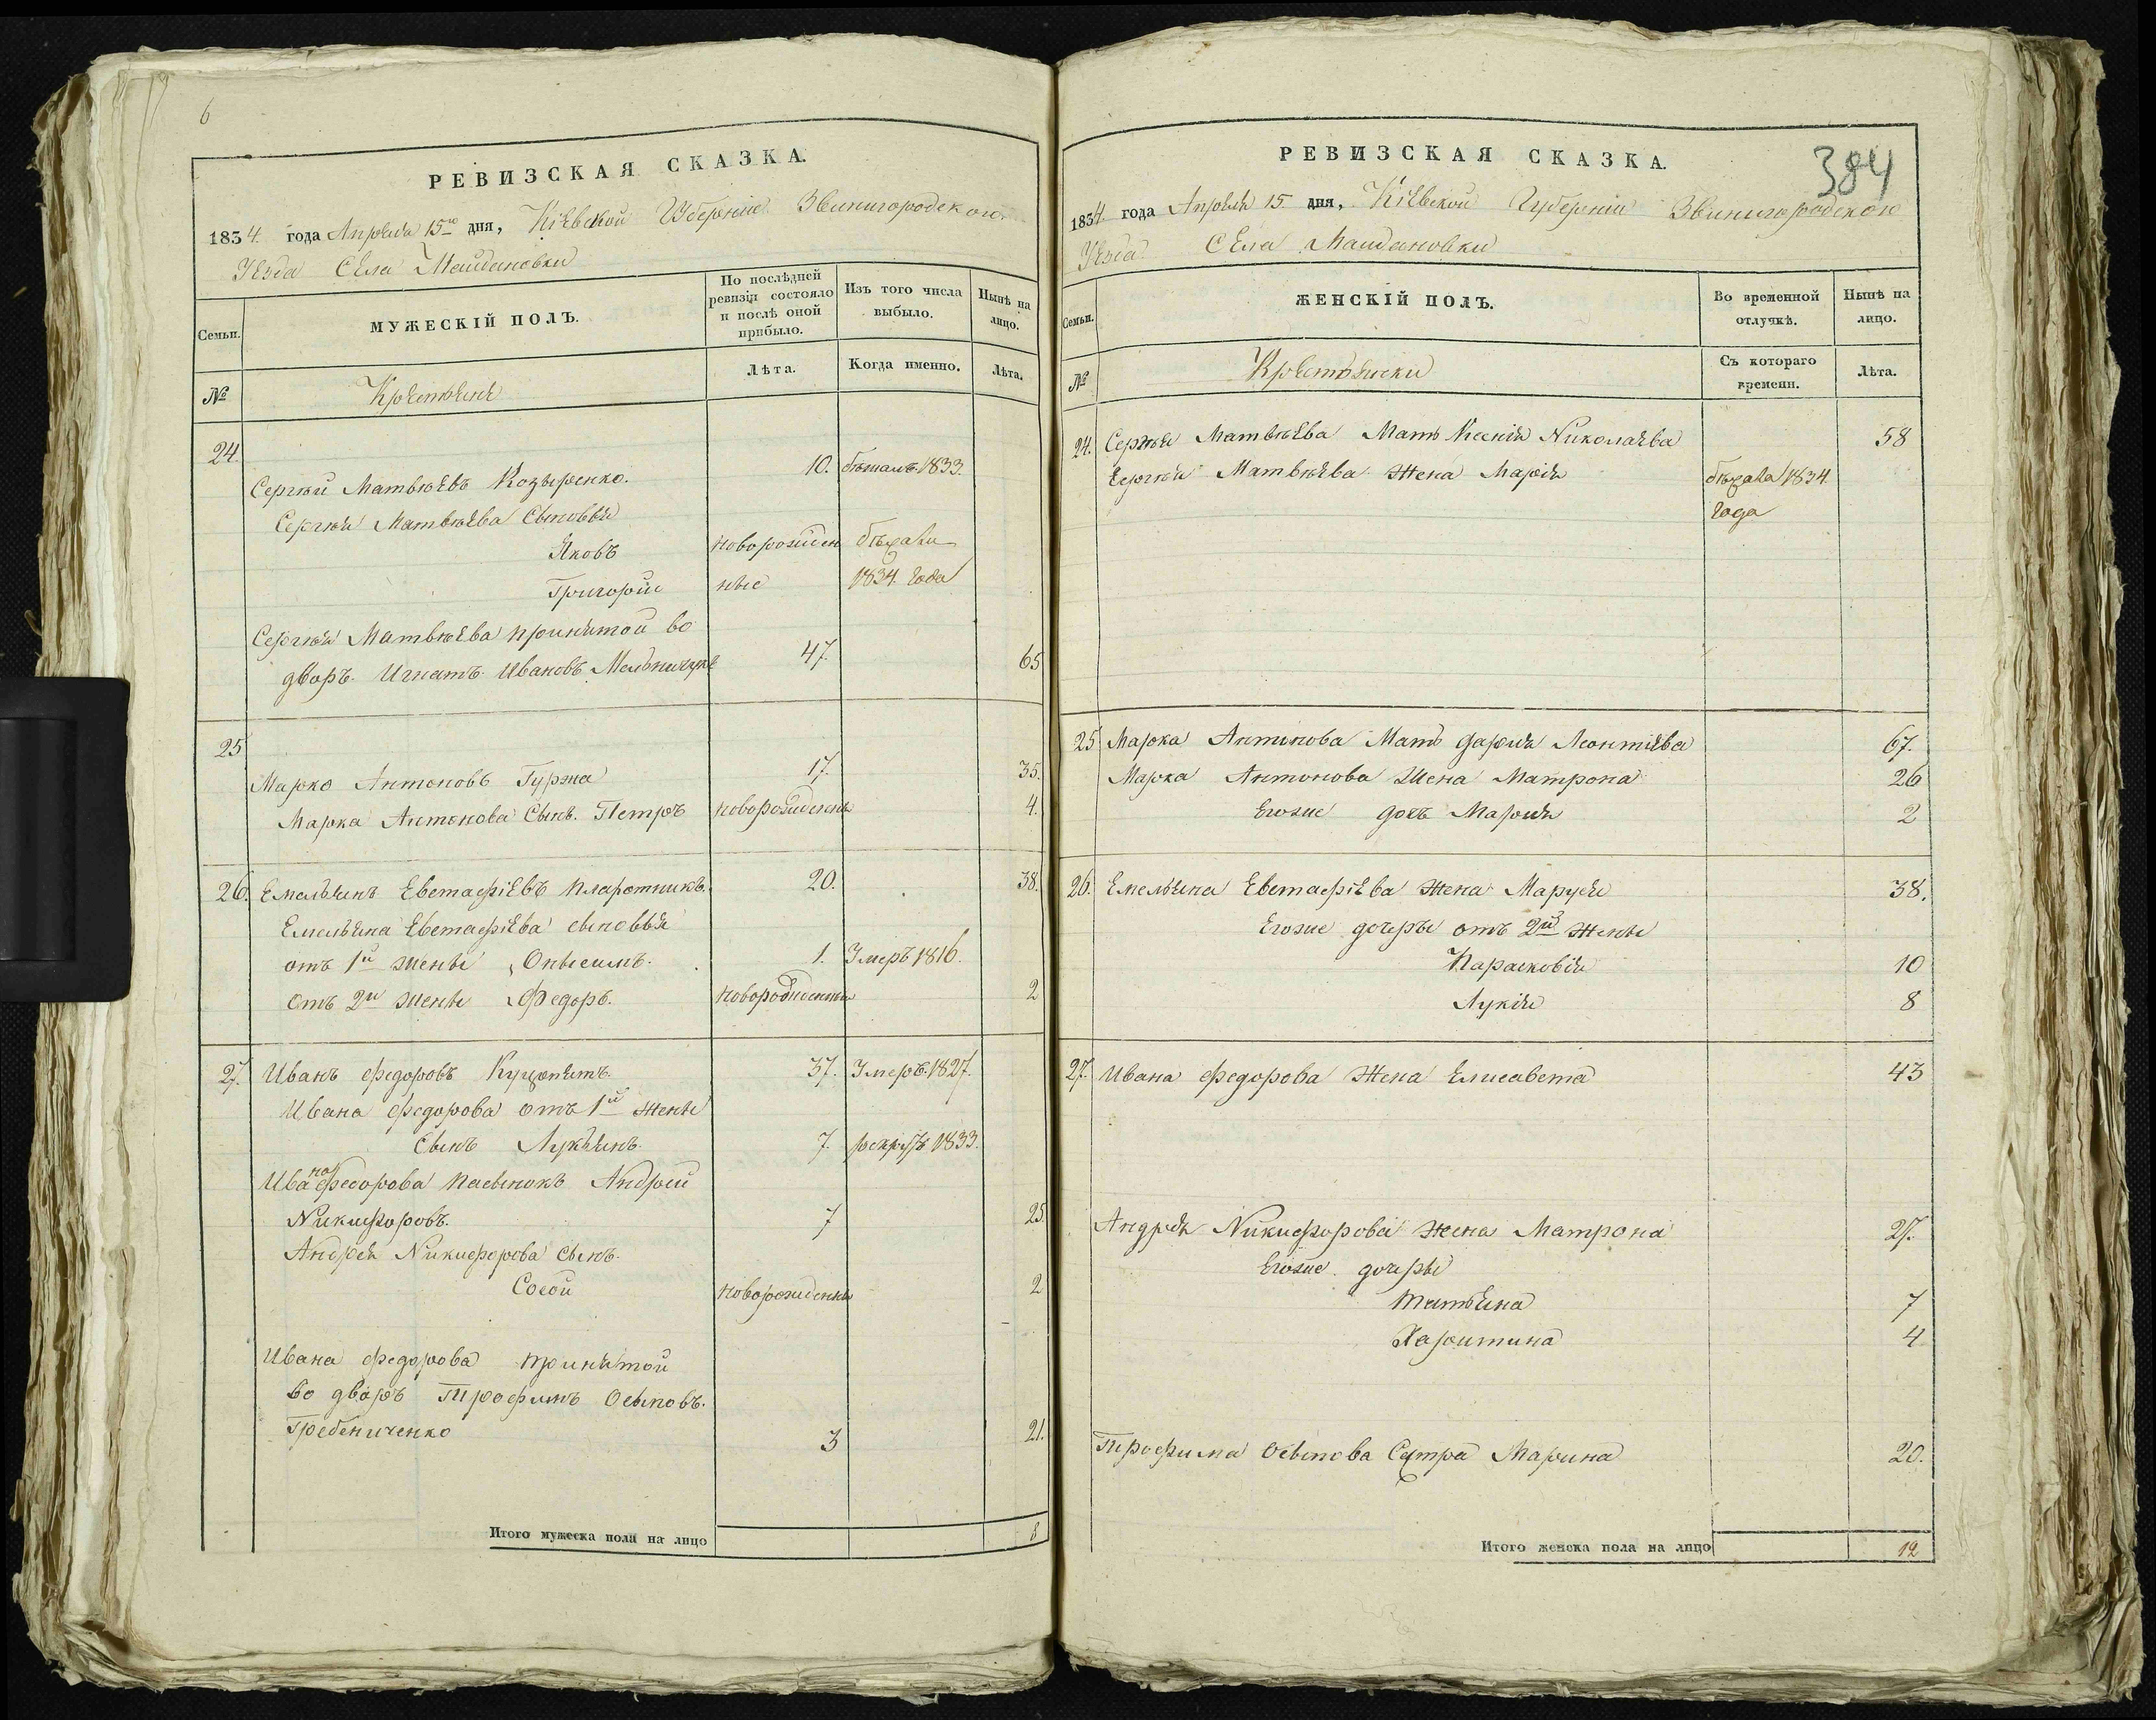 6
РЕВИЗСКАЯ СКАЗКА.
1834. года Апреля 15го дня, Кіевской Губерніи Звинигородского
Уезда Села Майдановки
Семьи.
МУЖЕСКІЙ ПОЛЪ.
По послѣдней ревизіи состояло и послѣ оной прибыло.
Изъ того числа выбыло.
Нынѣ на лицо.
№
Крестьяне
Лѣта.
Когда именно.
Лѣта.
24.
Сергѣй Матвѣевъ Козыренко. 10. бѣжалъ 1833.
Сергѣя Матвѣева Сыновья
Яковъ новорожден бѣжали
Григорій ные 1834. года
Сергѣя Матвѣева принятой во
дворъ Игнатъ Ивановъ 47. 65
25
Марко Антоновъ Гуржа 17. 35.
Марка Антонова Сынъ. Петръ новорожденны 4.
26. Емельянъ Евстафіевъ 20. 38.
Емельяна Евстафіева сыновья
отъ 1й жены Онысимъ. 1. Умеръ 1816.
отъ 2й жены Федоръ. новорожденны 2
27. Иванъ Федоровъ 37. Умеръ 1827.
Ивана Федорова отъ 1й жены
Сынъ Лукьянъ. 7. рекрутъ 1833.
Ивана Федорова пасынокъ Андрей
Никифоровъ. 7 25.
Андрея Никифорова сынъ.
новорожденны 2
Ивана Федорова принятой
во дворъ Трофимъ Осыповъ.
Гребениченко 3 21.
Итого мужеска пола на лицо 8
384
РЕВИЗСКАЯ СКАЗКА.
1834. года Апреля 15 дня, Кіевской Губерніи Звинигородского
Уезда Села Майдановки
Семьи.
ЖЕНСКІЙ ПОЛЪ.
Во временной отлучкѣ.
Нынѣ на лицо.
№
Крестьянки
Съ котораго времени.
Лѣта.
24. Сергѣя Матвѣева Мать Ксенія Николаева 58
Сергѣя Матвѣева Жена Марія бѣжала 1834
года
25 Марка Антонова Мать Дарія Леонтіева 67.
Марка Антонова Жена Матрона 26
Егоже дочь Марія 2
26. Емельяна Евстафіева Жена Маруся 38.
Егоже дочеры отъ 2й Жены
Парасковія 10
Лукія 8
27. Ивана Федорова Жена Елисавета 43
Андрея Никифорова жена Матрона 27.
Егоже дочеры
Татьяна 7
Харитина 4
Трофима Осыпова Сестра Марина 20.
Итого женска пола на лицо 12